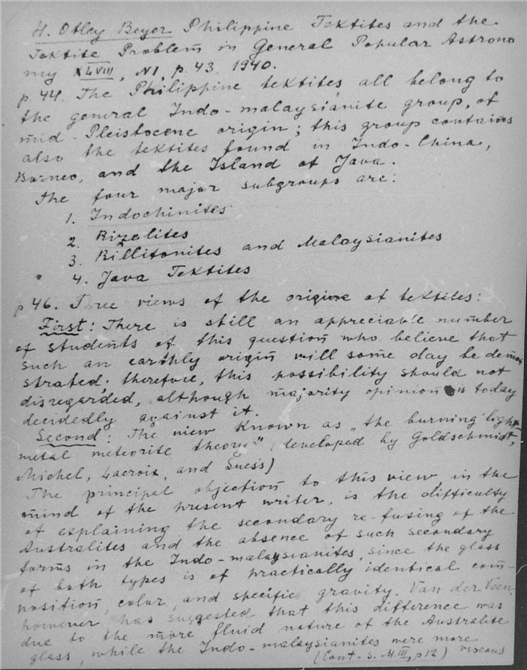 H. Otley Beyer Philippine Tektites and the
Tektite Problem in General Popular Astrono
my XLVIII, N1, p. 43. 1940.
p. 44. The Philippine tektites all belong to
the general Indo-malaysianite group, of
mid-Pleistocene origin; this group contains
also the tektites found in Indo-China,
Borneo, and the Island of Java.
The four major subgroups are:
1. Indochinites
2. Rizalites
3. Billitonites and Malaysianites
4. Java Tektites
p 46. Three views of the origine of tektites:
First: There is still an appreciable number
of students of this question who believe that
such an earthly origin will some day be demon
strated; therefore, this possibility should not
disregarded, although majority opinion is today
decidedly against it.
Second: The view known as „the burning light
metal meteorite theory" (developed by Goldschmidt,
Michel, Lacroix, and Suess)
The principal objection to this view in the
mind of the present writer, is the difficulty
of explaining the secondary re-fusing of the
Australites and the absence of such secondary
forms in the Indo-malaysianites, since the glass
of both types is of practically identical com-
position, color, and specific gravity. Van der Veen,
however has suggested that this difference was
due to the more fluid nature of the Australite
glass, while the Indo-malaysianites were more
(Cont. S. M. III, p12) viscous